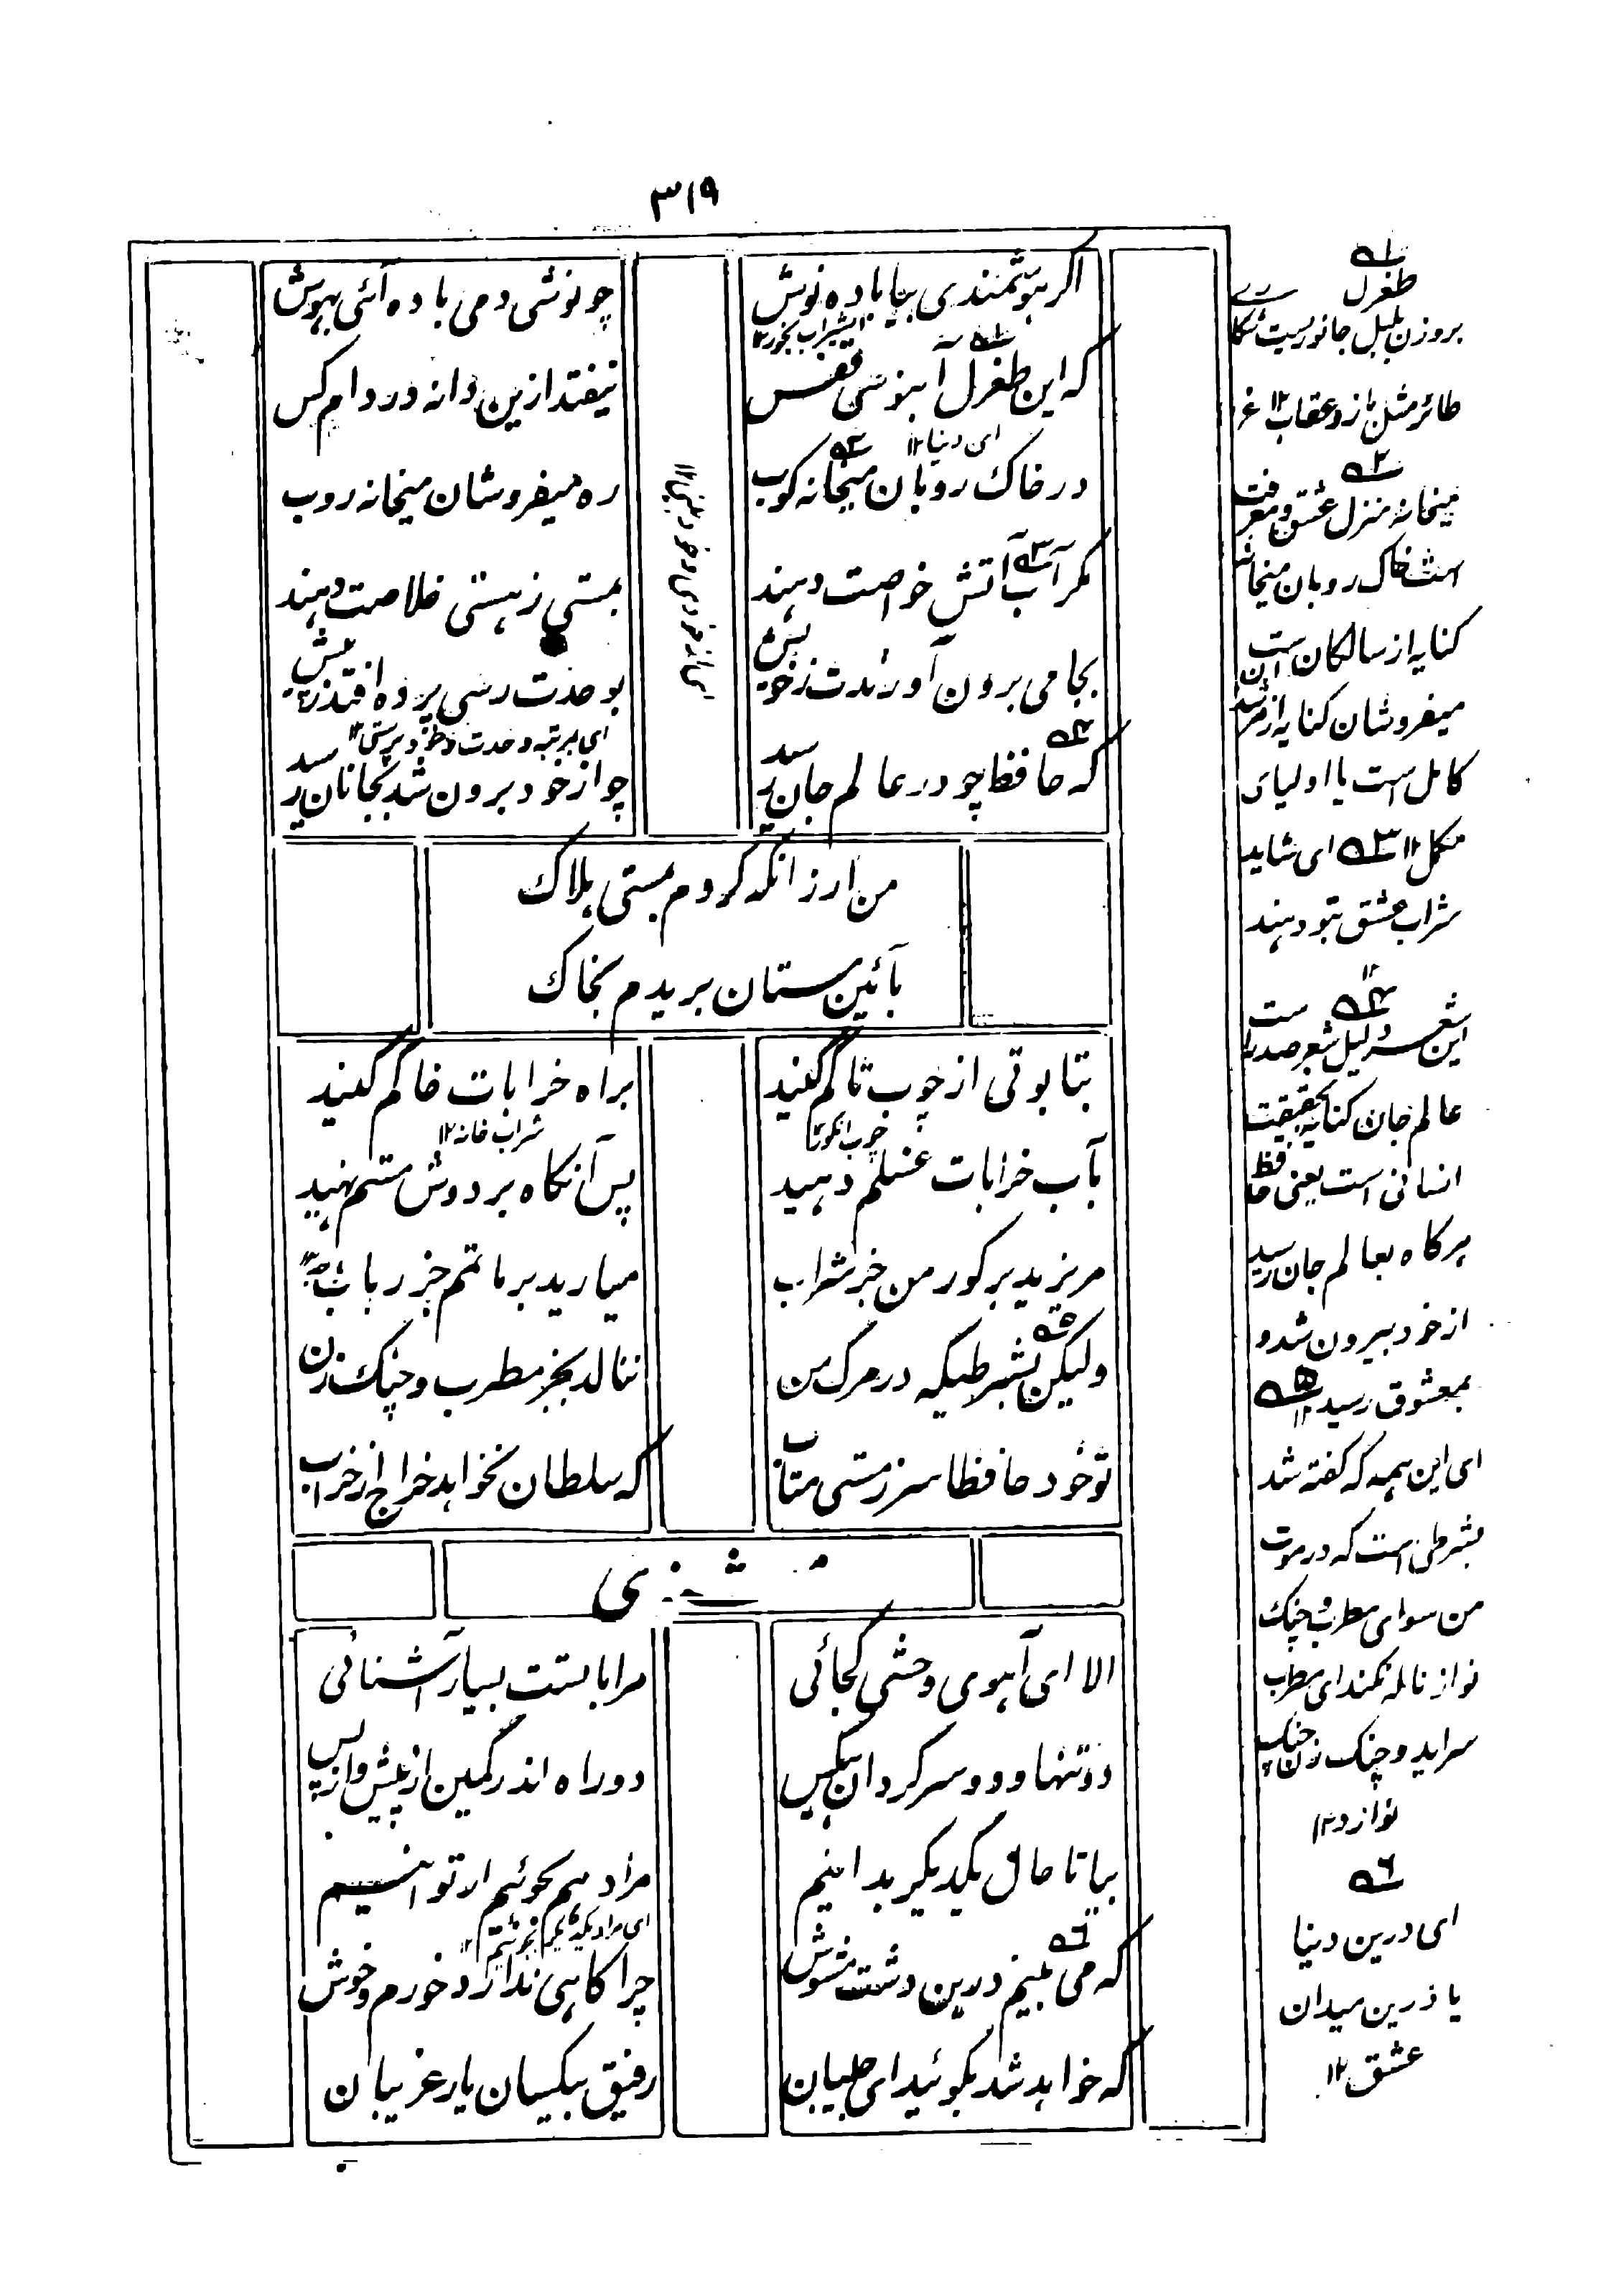 ۳۱۹
اگر هوشمندی بیا باده نوش
چو نوشی دمی باده آئی بهوش
ای شراب بخور ۱۲
که این طغرل آبنوسی قفس
نیفتد ازین دانه در دام کس
ای دنیا ۱۲
در خاک روبان میخانه کوب
ره میفروشان میخانه روب
مگر آب آتش خواصت دهند
بمستی ز هستی خلاصت دهند
بجامی برون آورندت ز خویش
بوحدت رسی پرده افتد ز پیش
ای بمرتبه وحدت
که حافظ چو در عالم جان رسید
چو از خود برون شد بجانان رسید
من ار زانکه گردم بمستی هلاک
بآئین مستان بریدم بخاک
بتابوتی از چوب تاکم کنید
براه خرابات خاکم کنید
چوب انگور
شراب خانه ۱۲
بآب خرابات غسلم دهید
پس آنگاه بر دوش مستم نهید
مریزید بر گور من جز شراب
میارید بر ماتمم جز رباب
ولیکن بشرطیکه در مرگ من
ننالد بجز مطرب و چنگ زن
تو خود حافظا سر ز مستی متاب
که سلطان نخواهد خراج از خراب
مثنوی
الا ای آهوی وحشی کجائی
مرا با تست بسیار آشنائی
دو تنها و دو سرگردان بیکس
دو راه اندر کمین از پیش و از پس
بیا تا حال یکدیگر بدانیم
مراد هم بجوئیم ار توانیم
که می بینم درین دشت مشوش
چراگاهی ندارد خورم و خوش
که خواهد شد بگوئید ای طبیبان
رفیق بیکسان یار غریبان
۱
طغرل
بروزن بلبل جانوریست شکاری
طائر مثل باز و عقاب ۱۲ غ
۲
میخانه منزل عشق و معرفت
است خاک روبان میخانه
کنایه از سالکان آن است
میفروشان کنایه از مرشد
کامل است یا اولیای
مکمل ۱۲ ۳ ای شاید
شراب عشق بتو دهند
۱۲
۴
این شعر دلیل شعر صدر است
عالم جان کنایه بحقیقت
انسانی است یعنی حافظ
هرگاه بعالم جان رسید
از خود بیرون شد و
بمعشوق رسید ۱۲ ۵
ای این همه که گفته شد
بشرطی است که در موت
من سوای مطرب و چنگ
نواز ناله نکند ای مطرب
سراید و چنگ زن چنگ
نوازد ۱۲
۶
ای درین دنیا
یا درین میدان
عشق ۱۲